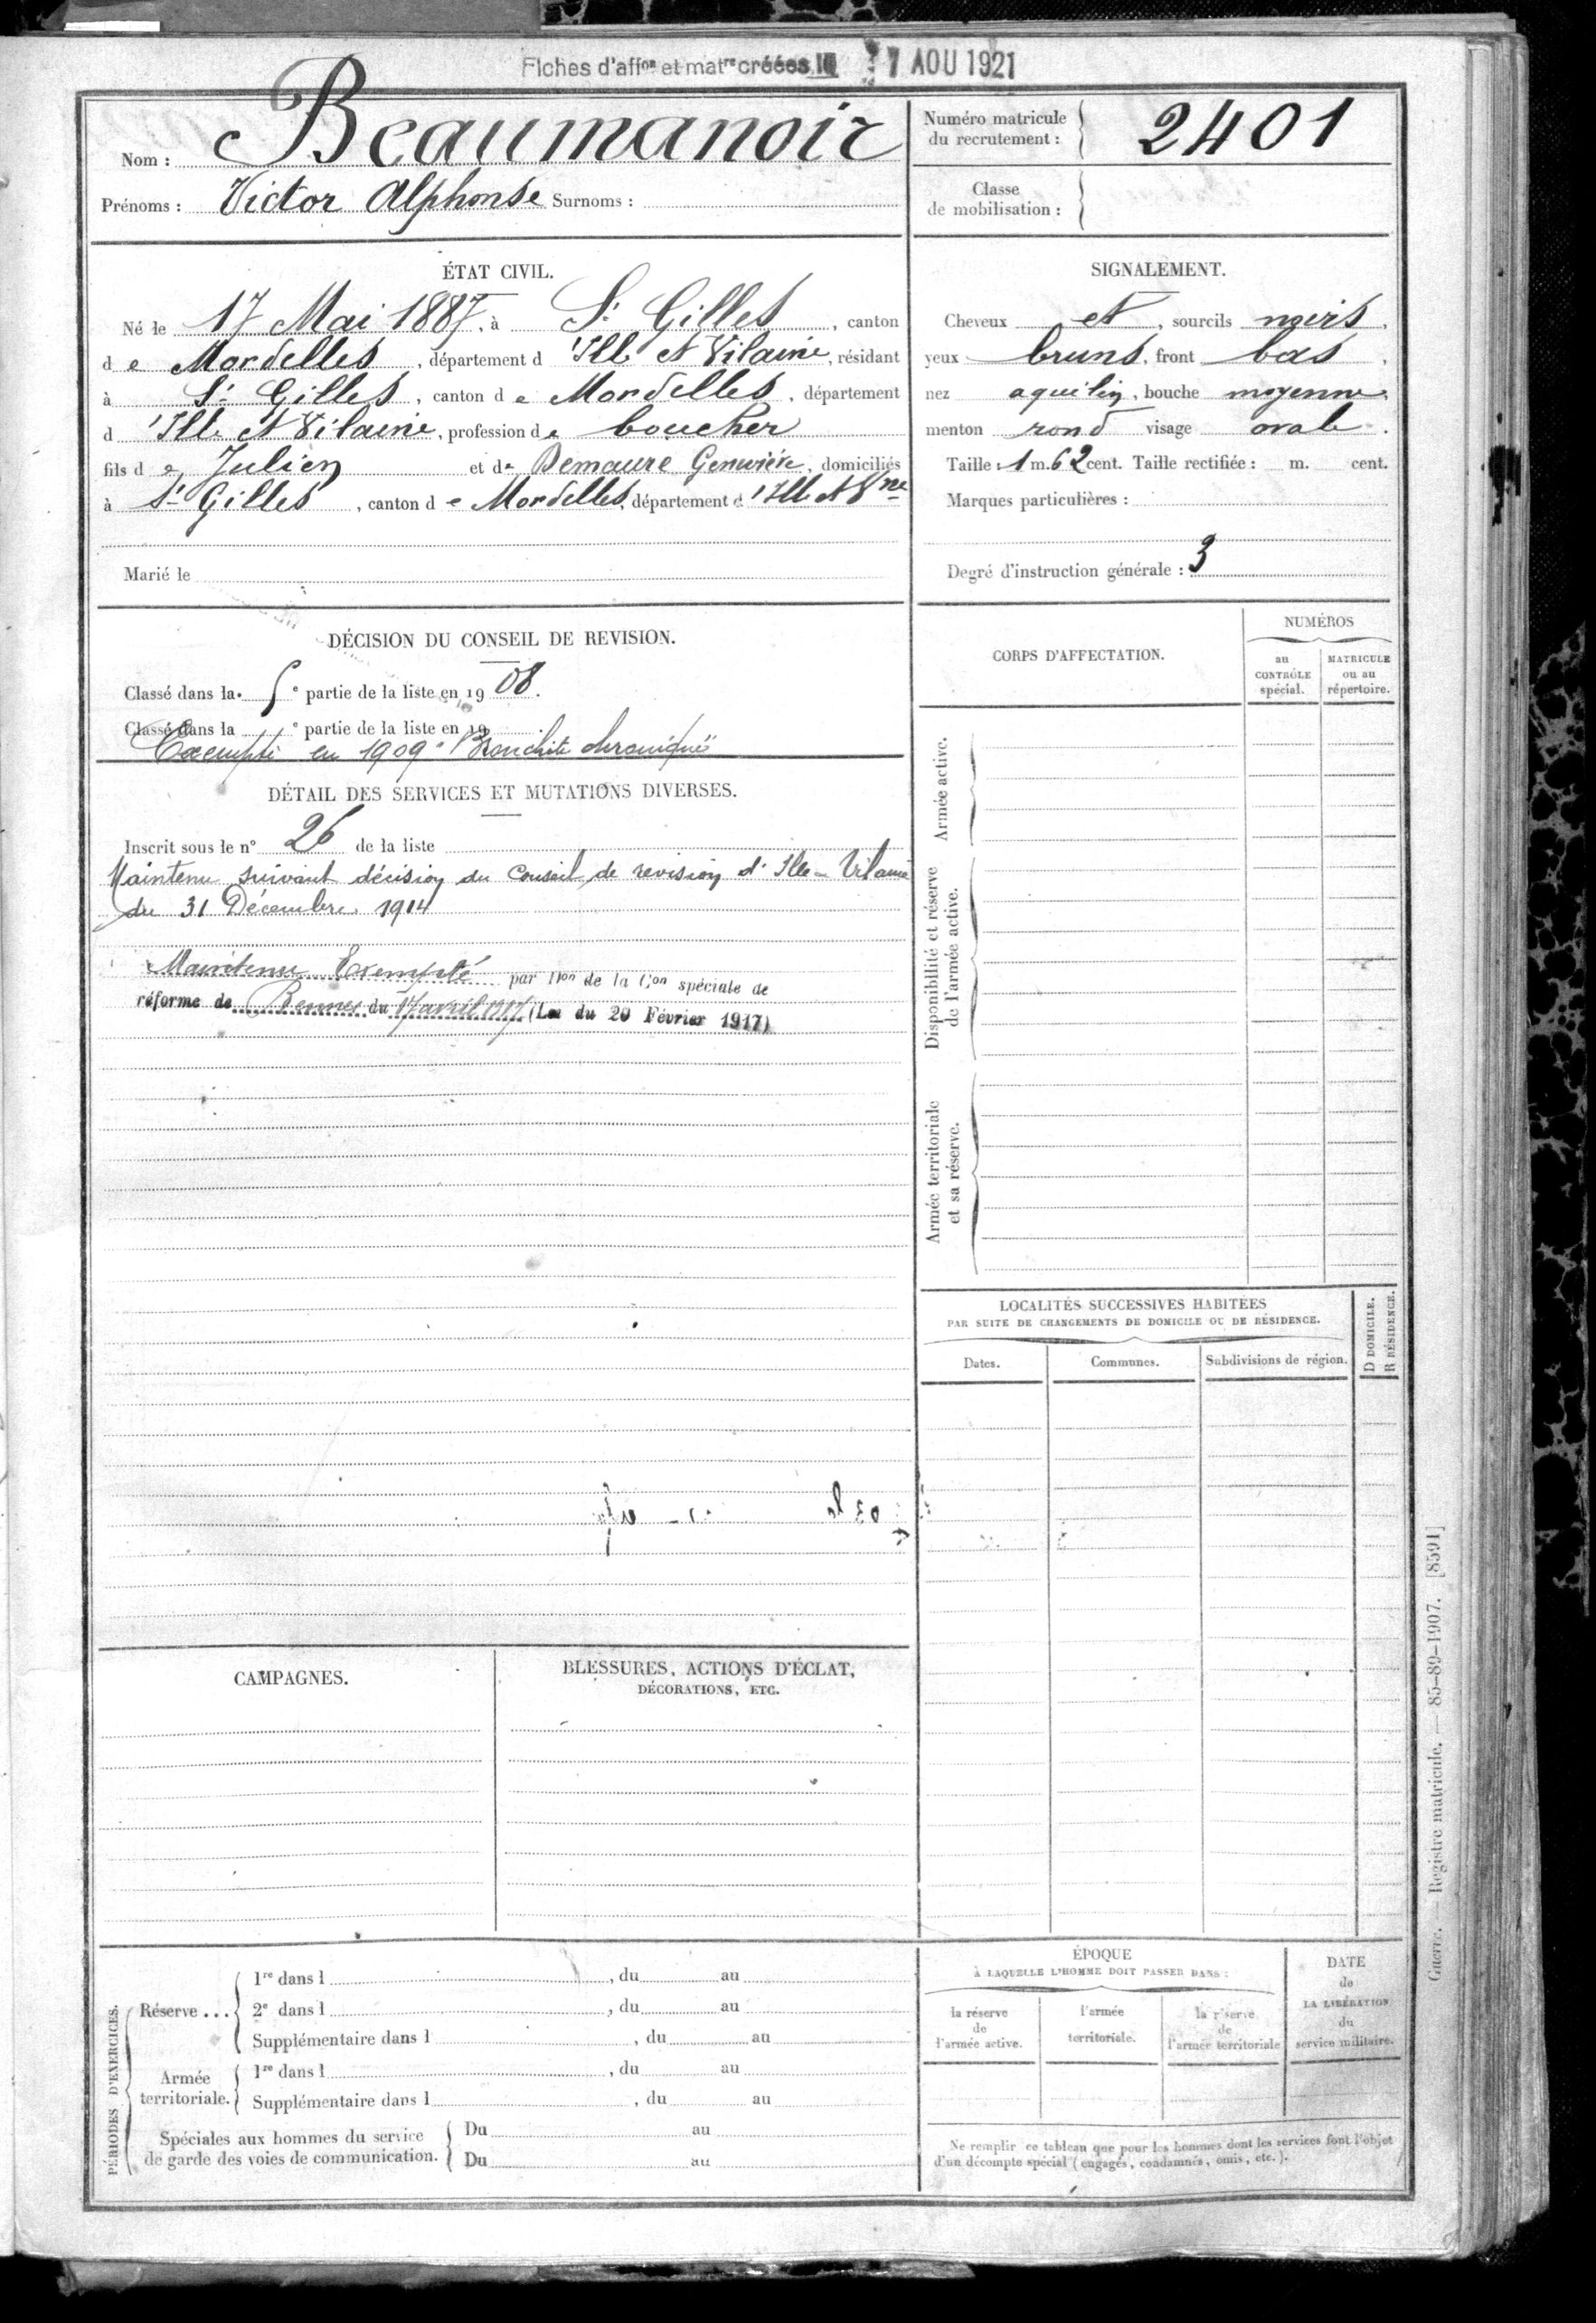 Fiches d'affon et matre créées le 17 AOU 1921
Nom : Beaumanoir
Prénoms : Victor Alphonse Surnoms :
Numéro matricule
du recrutement : 2401
Classe
de mobilisation :
ÉTAT CIVIL.
Né le 17 Mai 1887, à St Gilles, canton
de Mordelles, département d'Ille et Vilaine, résidant
à St Gilles, canton de Mordelles, département
d'Ille et Vilaine, profession de boucher
fils de Julien et de Demaure Geneviève, domiciliés
à St Gilles, canton de Mordelles, département d'Ille et Vne
Marié le
SIGNALEMENT.
Cheveux et, sourcils noirs,
yeux bruns, front bas,
nez aquilin, bouche moyenne,
menton rond visage ovale.
Taille : 1 m. 62 cent. Taille rectifiée : m. cent.
Marques particulières :
Degré d'instruction générale : 3
DÉCISION DU CONSEIL DE REVISION.
Classé dans la 5e partie de la liste en 1908.
Classé dans la e partie de la liste en 19 .
Exempté en 1909 "Bronchite chronique"
DÉTAIL DES SERVICES ET MUTATIONS DIVERSES.
Inscrit sous le n° 26 de la liste
Maintenu suivant décision du Conseil de revision d'Ille-Vilaine
du 31 Décembre 1914
Maintenu Exempté par Don de la Con spéciale de
réforme de Rennes du 17 avril 1917 (Loi du 20 Février 1917)
CORPS D'AFFECTATION.
NUMÉROS
au
CONTRÔLE
spécial.
MATRICULE
ou au
répertoire.
Armée active.
Disponibilité et réserve
de l'armée active.
Armée territoriale
et sa réserve.
LOCALITÉS SUCCESSIVES HABITÉES
PAR SUITE DE CHANGEMENTS DE DOMICILE OU DE RÉSIDENCE.
Dates.
Communes.
Subdivisions de région.
D DOMICILE.
R RÉSIDENCE.
CAMPAGNES.
BLESSURES, ACTIONS D'ÉCLAT,
DÉCORATIONS, ETC.
PÉRIODES D'EXERCICES.
Réserve...
1re dans l , du au
2e dans l , du au
Supplémentaire dans l , du au
Armée
territoriale.
1re dans l , du au
Supplémentaire dans l , du au
Spéciales aux hommes du service
de garde des voies de communication.
Du au
Du au
ÉPOQUE
À LAQUELLE L'HOMME DOIT PASSER DANS :
la réserve
de
l'armée active.
l'armée
territoriale.
la réserve
de
l'armée territoriale
DATE
de
LA LIBÉRATION
du
service militaire.
Ne remplir ce tableau que pour les hommes dont les services font l'objet
d'un décompte spécial (engagés, condamnés, omis, etc.).
Guerre. — Registre matricule. — 85-89-1907. [8591]